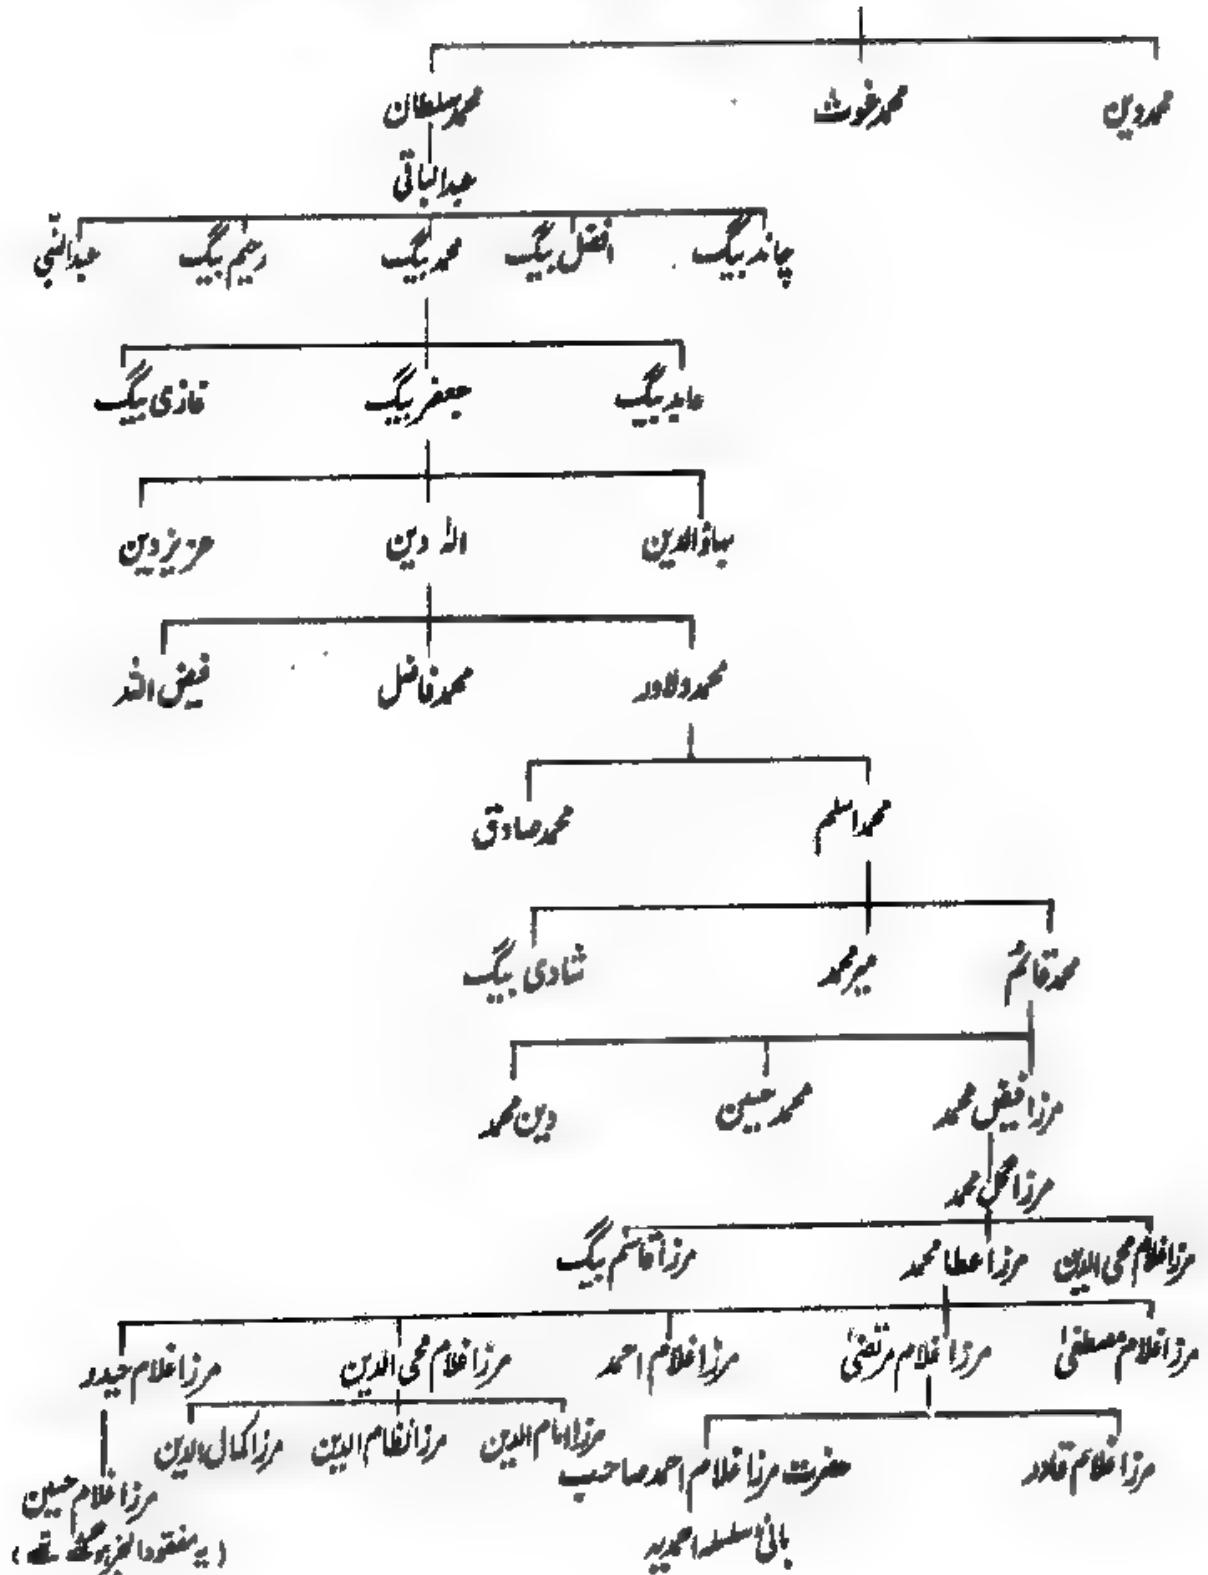 محمد دین محمد غوث محمد سلطان
عبد الباقی
چاند بیگ افضل بیگ محمد بیگ رحیم بیگ عبد النبی
عابد بیگ جعفر بیگ غازی بیگ
بہاؤ الدین الہ دین عزیز دین
محمد دلاور محمد فاضل فیض اللہ
محمد اسلم محمد صادق
محمد قائم میر محمد شادی بیگ
مرزا فیض محمد محمد حسین دین محمد
مرزا گل محمد
مرزا غلام محی الدین مرزا عطا محمد مرزا قاسم بیگ
مرزا غلام مصطفیٰ مرزا غلام مرتضیٰ مرزا غلام احمد مرزا غلام محی الدین مرزا غلام حیدر
مرزا غلام قادر حضرت مرزا غلام احمد صاحب مرزا امام الدین مرزا نظام الدین مرزا کمال الدین
مرزا غلام حسین
بانئ سلسلہ احمدیہ
(یہ مفقود الخبر ہو گئے تھے)